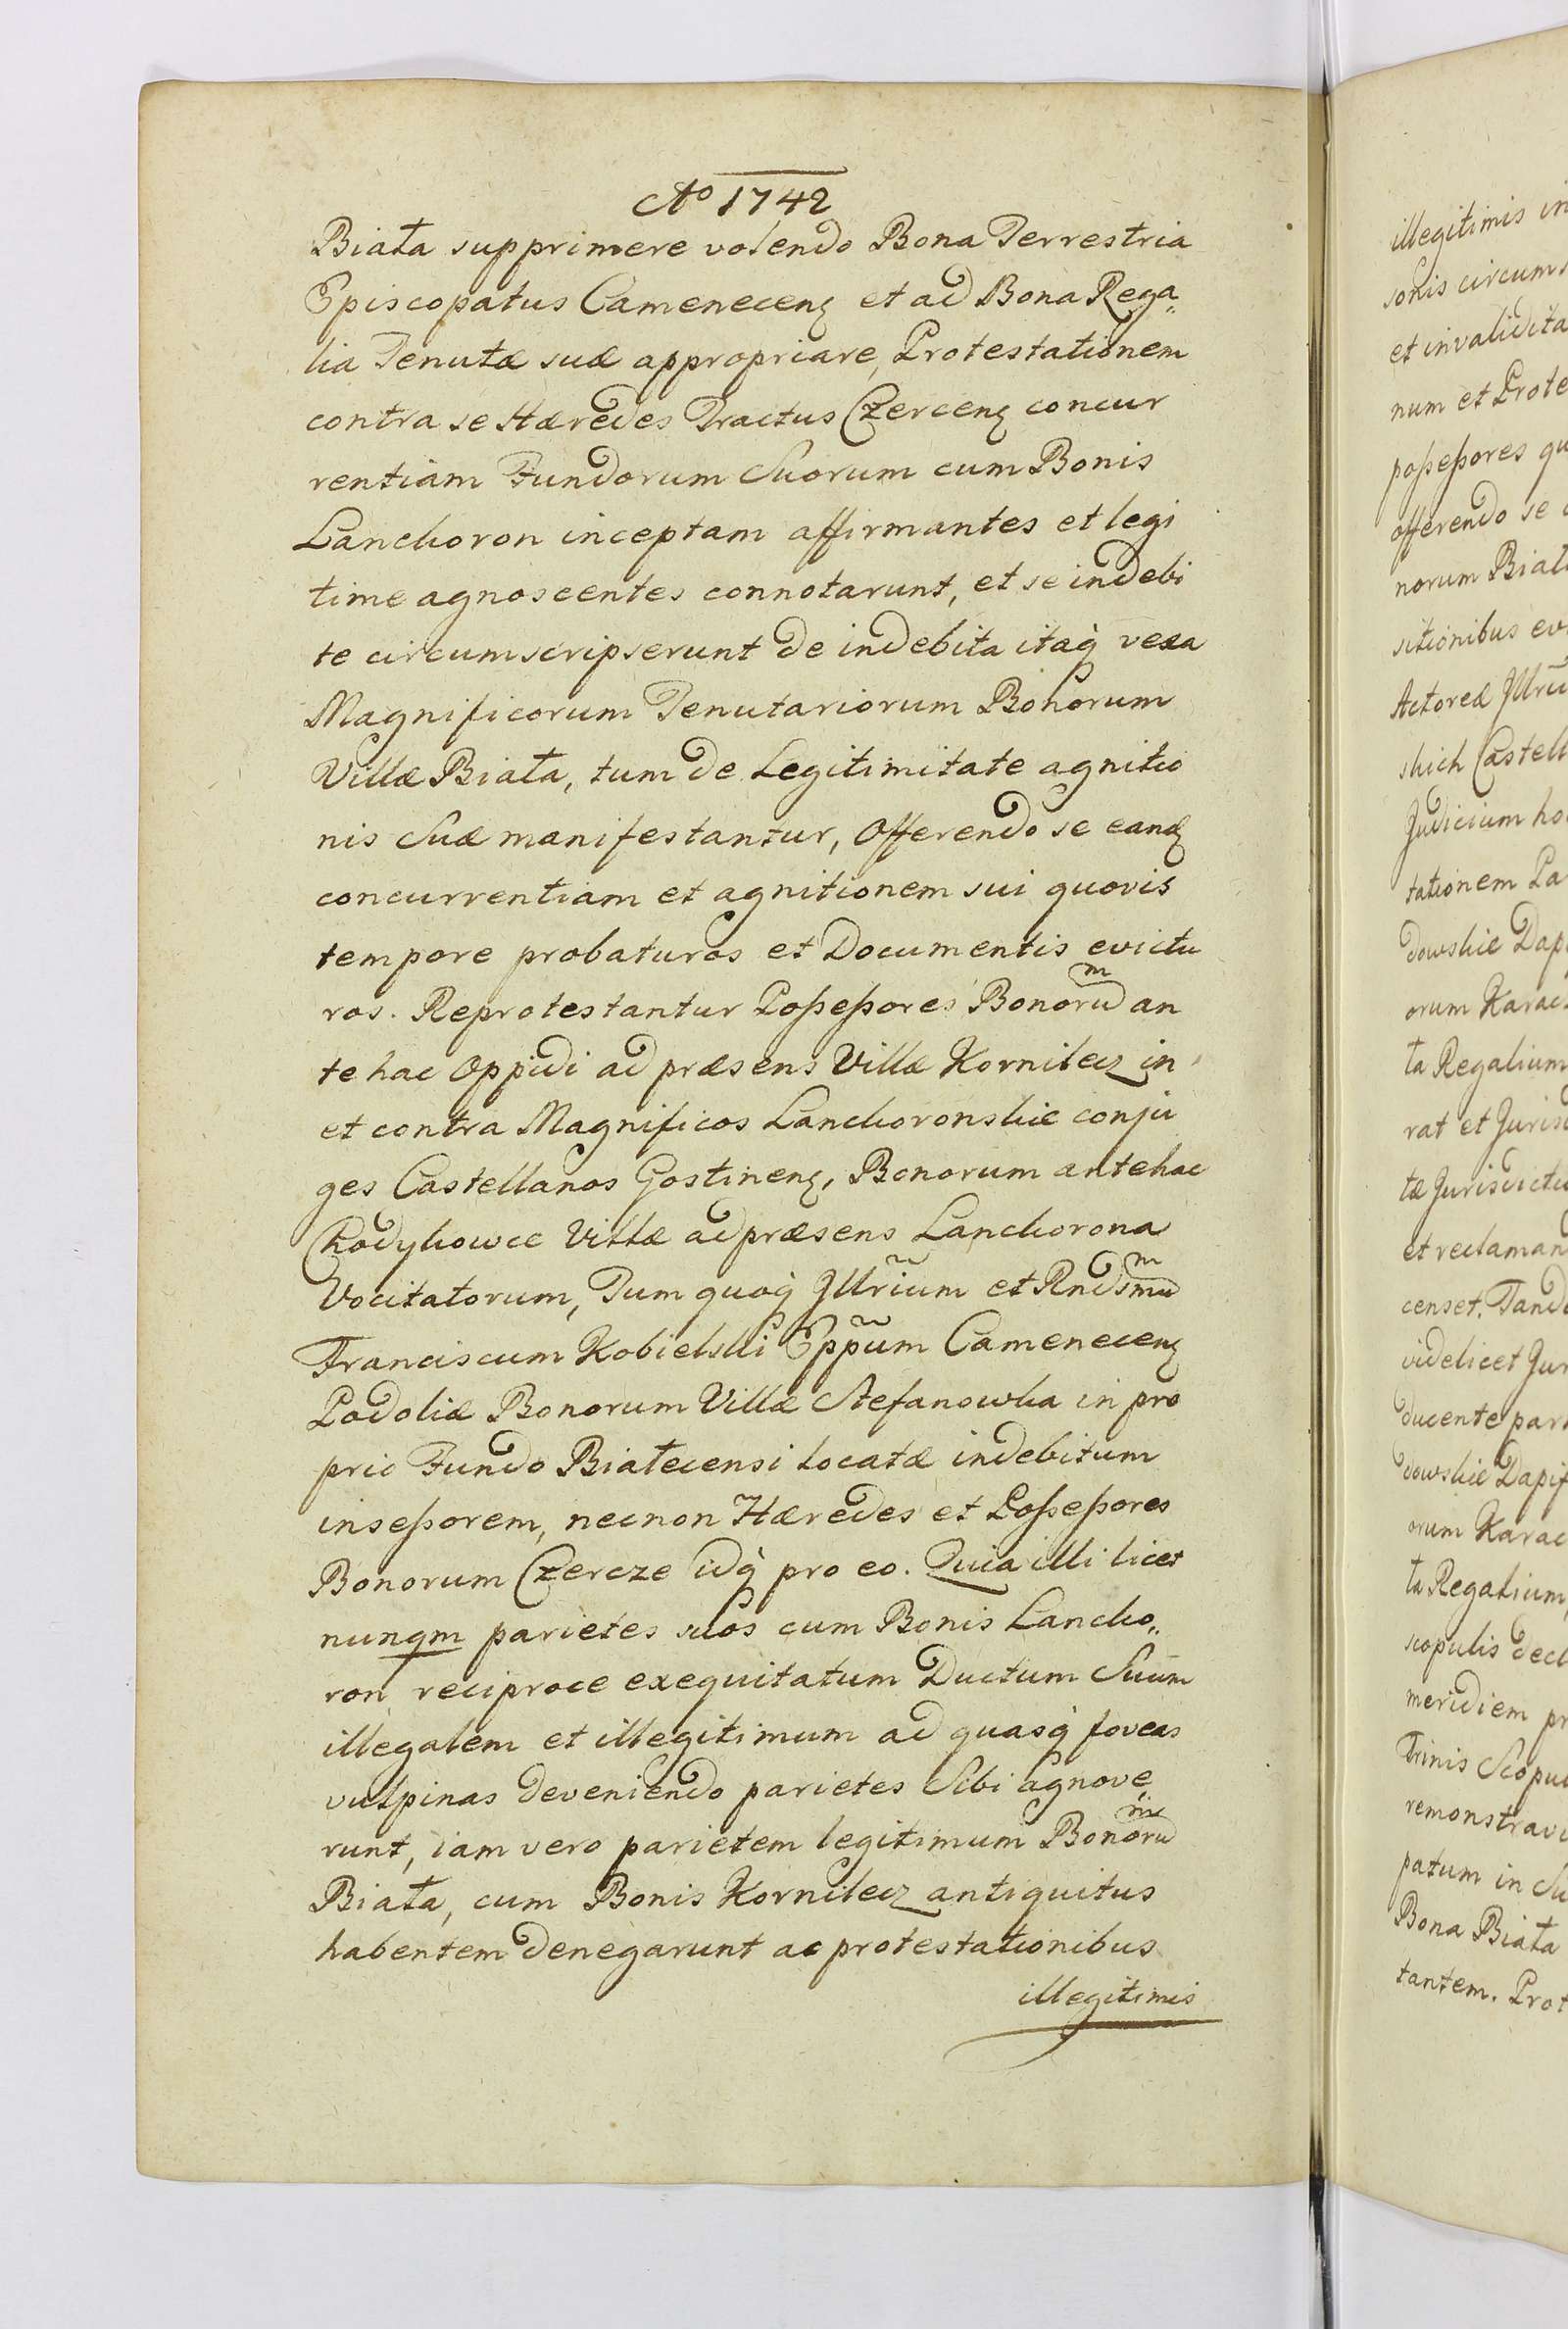 Ao 1742
Biała supprimere volendo Bona Terrestria
Episcopatus Camenecenȩ et ad Bona Rega„
lia Tenutæ suæ appropriare, Protestationem
contra se Hæredes Tractus Czercenȩ concur
rentiam Fundorum Suorum cum Bonis
Lanckoron inceptam affirmantes et legi
time agnoscentes connotarunt, et se indebi
te circumscripserunt de indebita itaq̀ vexa
Magnificorum Tenutariorum Bonorum
Villæ Biała, tum de Legitimitate agnitio
nis Suæ manifestantur, Offerendo se eandȩ
concurrentiam et agnitionem sui quovis
tempore probaturos et Documentis evictu
ros. Reprotestantur Poßeßores Bonorum an
te hac Oppidi ad præsens Villæ Kornilecz in
et contra Magnificos Lanckoronskie conju
ges Castellanos Gostinenȩ, Bonorum antehac
Chodykowce Villæ ad præsens Lanckorona
Vocitatorum, Tum quoq̀ Jllr̃ium et Rndsmum
Franciscum Kobielski Epp̃um Camenecenȩ
Podoliæ Bonorum Villæ Stefanowka in pro
prio Fundo Białecensi locatæ indebitum
inseßorem, necnon Hæredes et Poßeßores
Bonorum Czercze idq̀ pro eo. Quia illi licet
nunqm parietes suos cum Bonis Lancko„
ron reciproce exequitatum Ductum Suum
illegalem et illegitimum ad quasq̀ foveas
vulpinas deveniendo parietes Sibi agnove„
runt, iam vero parietem legitimum Bonorum
Biała, cum Bonis Kornilecz antiquitus
habentem denegarunt ac protestationibus
illegitimis
illegitimis in
sonis circums
et invalidita
num et Prote
poßeßores qu
offerendo se
norum Biał
sitionibus ev
Actoreæ Jllr̃i
skich Castell
Judicium ho
tationem Pa
dowskie Dap
orum Karac
ta Regalium
rat et Juris
tæ Jurisdictu
et reclaman
censet. Tand
videlicet Jur
ducente par
dowskie Dapif
orum Karac
ta Regalium
scopulis decl
meridiem pr
Trinis Scopu
remonstravi
patum in Su
Bona Biała
tantem. Prot